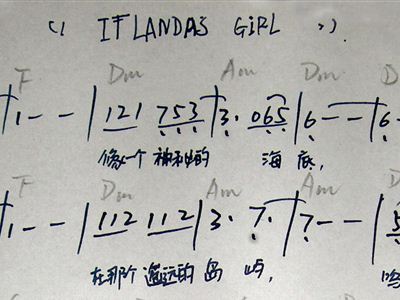 (( IFLANDAS GiRL )).
F Dm Am Dm D
1 - - | 121 753 | 3· 065 | 6 - - | 6 -
像一个神秘的 海底,
F Dm Am Am D
1 - - | 112 112 | 3· 7· | 7 - - | 5
在那个遥远的岛屿,